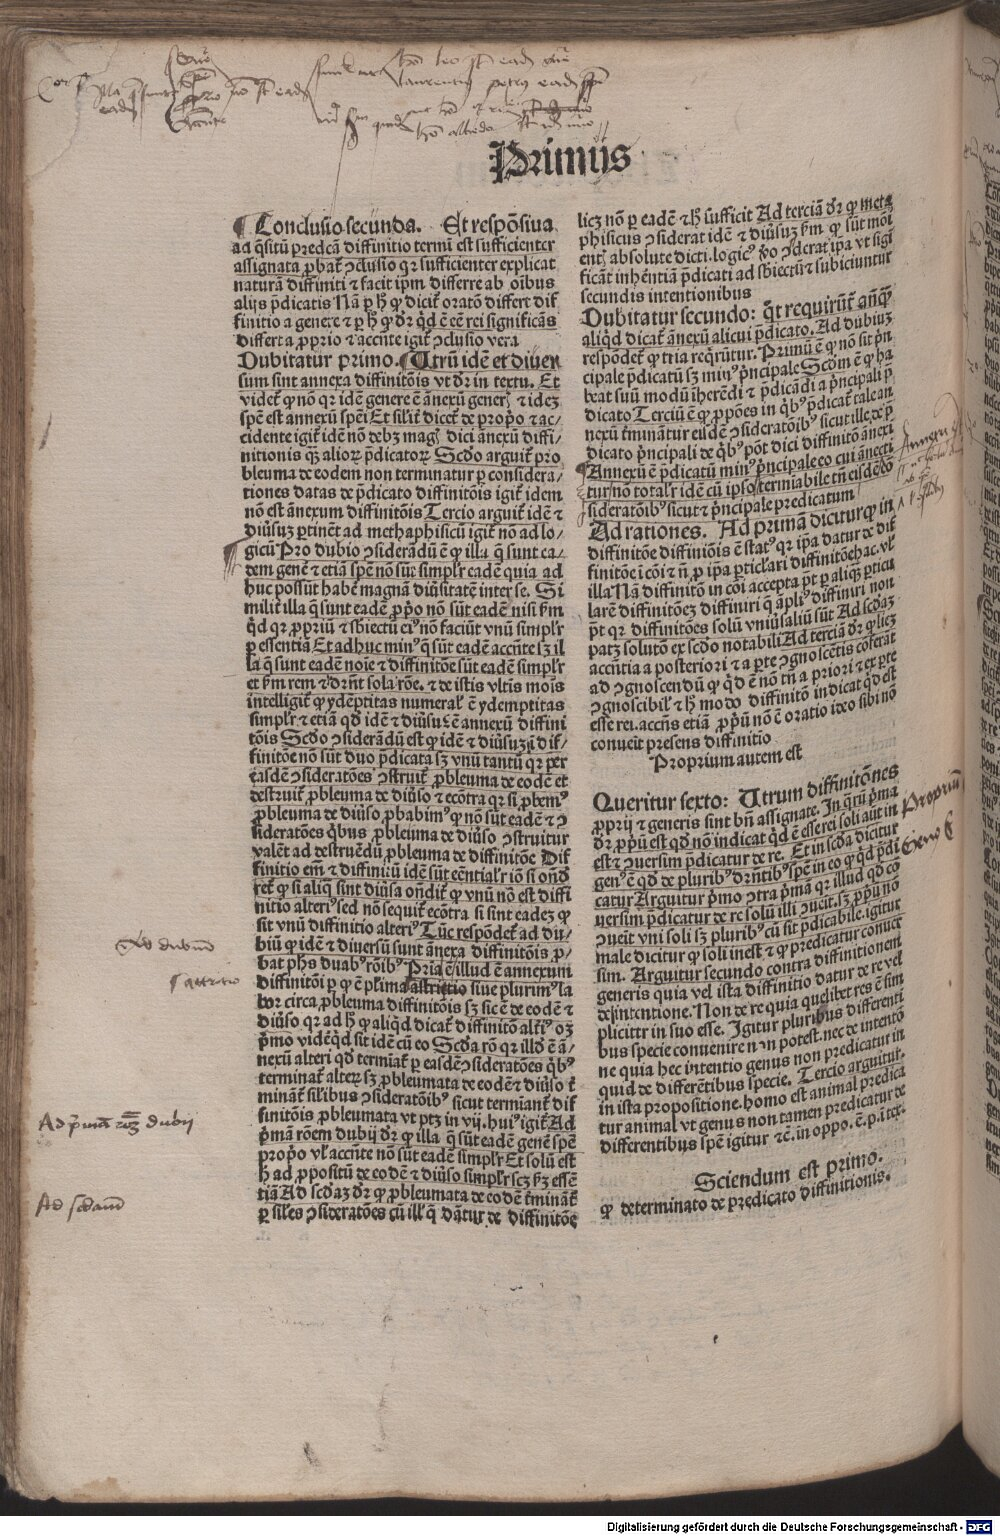 Primus
Conclusio secunda. Et respōsiua
ad q̄sitū predcā diffinitio termī est sufficienter
assignata ꝓbat̉ ꝯclusio qꝛ sufficienter explicat
naturā diffiniti ⁊ facit ip̄m differre ab oibus
alijs p̄dicatis Nā ꝑ h̓ ꝙ dicit̉ oratō differt dif
finitio a genere ⁊ ꝑ h̓ ꝙ dr̄ qd̓ ē eē rei significās
differt a ꝓprio ⁊ accn̄te igit̉ ꝯclusio vera
Dubitatur primo. Utrū idē et diuer
sum sint annexa diffinitōis vt dr̄ in textu. Et
videt̉ ꝙ nō qꝛ idē genere ē ānexū generi ⁊ ideꝫ
spē est annexū spēi Et silit̉ dicet̉ de ꝓpō ⁊ ac/
cidente igit̉ idē nō debꝫ magꝭ dici ānexū diffi/
nitionis qꝫ alioꝝ p̄dicatoꝝ Scd̄o arguit̉ pro
bleuma de eodem non terminatur ꝑ considera/
tiones datas de p̄dicato diffinitōis igit̉ idem
nō est ānexum diffinitōis Tercio arguit̉ idē ⁊
diūsuꝫ ꝑtinēt ad methaphisicū igit̉ nō ad lo/
gicū Pro dubio ꝯsiderādū ē ꝙ illa q̄ sunt ea/
dem genē ⁊ etiā spē nō sūt simplr̄ eadē quia ad
huc possūt habē magnā diūsitatē inter se. Si
milit̉ illa q̄ sunt eadē ꝓpō nō sūt eadē nisi ẜm
qd̓ qꝛ ꝓpriū ⁊ sbiectū eiꝰ nō faciūt vnū simplr̄
ꝑ essentiā Et adhuc minꝰ q̄ sūt eadē accn̄te sꝫ il
la q̄ sunt eadē noīe ⁊ diffinitōe sūt eadē simplr̄
et ẜm rem ⁊ drn̄t sola rōe. ⁊ de istis vltīs moīs
intelligit̉ ꝙ ydēptitas numeral̓ ē ydemptitas
simplr̄ ⁊ etiā qd̓ idē ⁊ diūsū ē annexū diffini
tōis Scd̄o ꝯsiderādū est ꝙ idē ⁊ diūsuꝫ dif/
finitōe nō sūt duo p̄dicata sꝫ vnū tantū qꝛ per
easdē ꝯsideratōes ꝯstruit̉ ꝓbleuma de eodē et
destruit̉ ꝓbleuma de diūso ⁊ ecōtra qꝛ si ꝓbemꝰ
ꝓbleuma de diūso ꝓbabimꝰ ꝙ nō sūt eadē ⁊ ꝯ
sideratōes qͥbus ꝓbleuma de diūso ꝯstruitur
valēt ad destruēdū ꝓbleuma de diffinitōe Dif
finitio em̄ ⁊ diffinitū idē sūt eēntialr̄ iō si ond̄
ret̉ ꝙ si aliq̄ sint diūsa ond̄it̉ ꝙ vnū nō est diffi
nitio alteriꝰ sed nō sequit̉ ecōtra si sint eadeꝫ ꝙ
sit vnū diffinitio alteriꝰ Tūc respōdet̉ ad du/
biū ꝙ idē ⁊ diuersū sunt ānexa diffinitōis ꝓ/
bat phs duabꝰ rōibꝰ Pria ē illud ē annexum
diffinitōi ꝑ ꝙ ē plima astrictio siue plurimꝰ la
bor circa ꝓbleuma diffinitōis sꝫ sic ē de eodē ⁊
diūso qꝛ ad h̓ ꝙ aliqd̓ dicat̉ diffinitō alt̉iꝰ oꝫ
pͥmo vidēqd̓ sit idē cū eo Scd̄a rō qꝛ illd̓ ē ā/
nexū alteri qd̓ termīat̉ ꝑ easdē ꝯsideratōes qͥbꝰ
terminat̉ alteꝝ sꝫ ꝓbleumata de eodē ⁊ diūso t̓
minat̉ silibus ꝯsideratōibꝰ sicut termīant̉ dif
finitōis ꝓbleumata vt ptꝫ in vij. huiꝰ igit̉ Ad
pͥmā rōem dubij dr̄ ꝙ illa q̄ sūt eadē genē spē
ꝓpō vl̓ accn̄te nō sūt eadē simplr̄ Et solū est
h̓ ad ꝓpositū de eodē ⁊ diūso simplr̄ scꝫ ẜm essē
tiā Ad scd̄aꝫ dr̄ ꝙ ꝓbleumata de eodē t̓minat̉
ꝑ siles ꝯsideratōes cū ill̓ q̄ dāt̉ur de diffinitōe
licꝫ nō ꝑ eadē ⁊ h̓ sufficit Ad terciā dr̄ ꝙ meta
phisicus ꝯsiderat idē ⁊ diūsuꝫ ẜm ꝙ sūt moī
entꝭ absolute dicti. logicꝰ ꝟo ꝯsiderat ipa vt sigī
ficāt inhēntiā p̄dicati ad sbiectū ⁊ subiciuntur
secundis intentionibus
Dubitatur secundo: qͦt requirūt̉ āqꝙ
aliqd̓ dicat̉ ānexū alicui p̄dicato. Ad dubiuꝫ
respōdet̉ ꝙ tria reqͥrūtur. Primū ē ꝙ nō sit pͥn
cipale p̄dicatū sꝫ minꝰ pͥncipale Scd̄m ē ꝙ ha
beat suū modū īherēdi ⁊ p̄dicādi a pͥncipali p̄
dicato Terciū ē ꝙ ꝓpōes in qͥbꝰ p̄dicat̉ tale an
nexū t̓minātur eisdē ꝯsideratōibꝰ sicut ille. de p̄
dicato pͥncipali de qͥbꝰ pōt dici diffinitō ānexi
Annexū ē p̄dicatū minꝰ pͥncipale eo cui ānecti
tur nō totalr̄ idē cū ipso termiabile tn̄ eisdē ꝯ
sideratōibꝰ sicut ⁊ pͥncipale predicatum
Ad rationes. Ad primā dicitur ꝙ in
diffinitōe diffiniōis ē statꝰ qꝛ ipa datur de dif
finitōe ī cōi ⁊ n̄ ꝓ ipa ꝑticl̓ari diffinitōe hac. vl̓
illa Nā diffinitō in cōi accepta pt̓ ꝑ aliqꝫ ꝑticu
larē diffinitōeꝫ diffiniri q̄ āpliꝰ diffiniri non
pt̓ qꝛ diffinitōes solū vniūsaliū sūt Ad scd̄aꝫ
patꝫ solutō ex scd̄o notabili Ad terciā dr̄ ꝙ licꝫ
accn̄tia a posteriori ⁊ a ꝑte ꝯgnoscētis cōferāt
ad ꝯgnoscendū ꝙ qd̓ ē nō tn̄ a priori ⁊ ex ꝑte
ꝯgnoscibil̓ ⁊ h̓ modo diffinitō indicat qd̓ est
esse rei. accn̄s etiā ꝓpͥū nō ē oratio ideo sibi nō
conueīt presens diffinitio
Proprium autem est
Queritur sexto: Utrum diffinitōnes
ꝓprij ⁊ generis sint bn̄ assignate. In q̄rū pͥma
dr̄ ꝓpͥū est qd̓ nō indicat qd̓ ē esse rei soli aūt in
est ⁊ ꝯuersim p̄dicatur de re. Et in scd̄a dicitur
genꝰ ē qd̓ de pluribꝰ drn̄tibꝰ spē in eo ꝙ qd̓ p̄di
catur Arguitur pͥmo ꝯtra pͥmā qꝛ illud qd̓ cō
uersim p̄dicatur de re solū illi ꝯueīt. sꝫ ꝓpͥū nō
ꝯueīt vni soli sꝫ pluribꝰ cū sit p̄dicabile. igitur
male dicitur ꝙ soli inest ⁊ ꝙ predicatur conuer
sim. Arguitur secundo contra diffinitionem
generis quia vel ista diffinitio datur de re vel
de intentione. Non de re quia quelibet res ē sim
pliciter in suo esse. Igitur pluribus differenti
bus specie conuenire non potest. nec de intentō
ne quia hec intentio genus non predicatur in
quid de differētibus specie. Tercio arguitur.
in ista propositione. homo est animal predica
tur animal vt genus non tamen predicatur de
differentibus spē igitur ⁊c̄. in oppo. ē. p. i ter.
Sciendum est primo.
ꝙ determinato de predicato diffinitionis.
Annexū
Propriū
Genꝰ
2m dubiū
astrictio
Ad pͥmā rōeꝫ dubij
Ad scd̄am
Digitalisierung gefördert durch die Deutsche Forschungsgemeinschaft - DFG